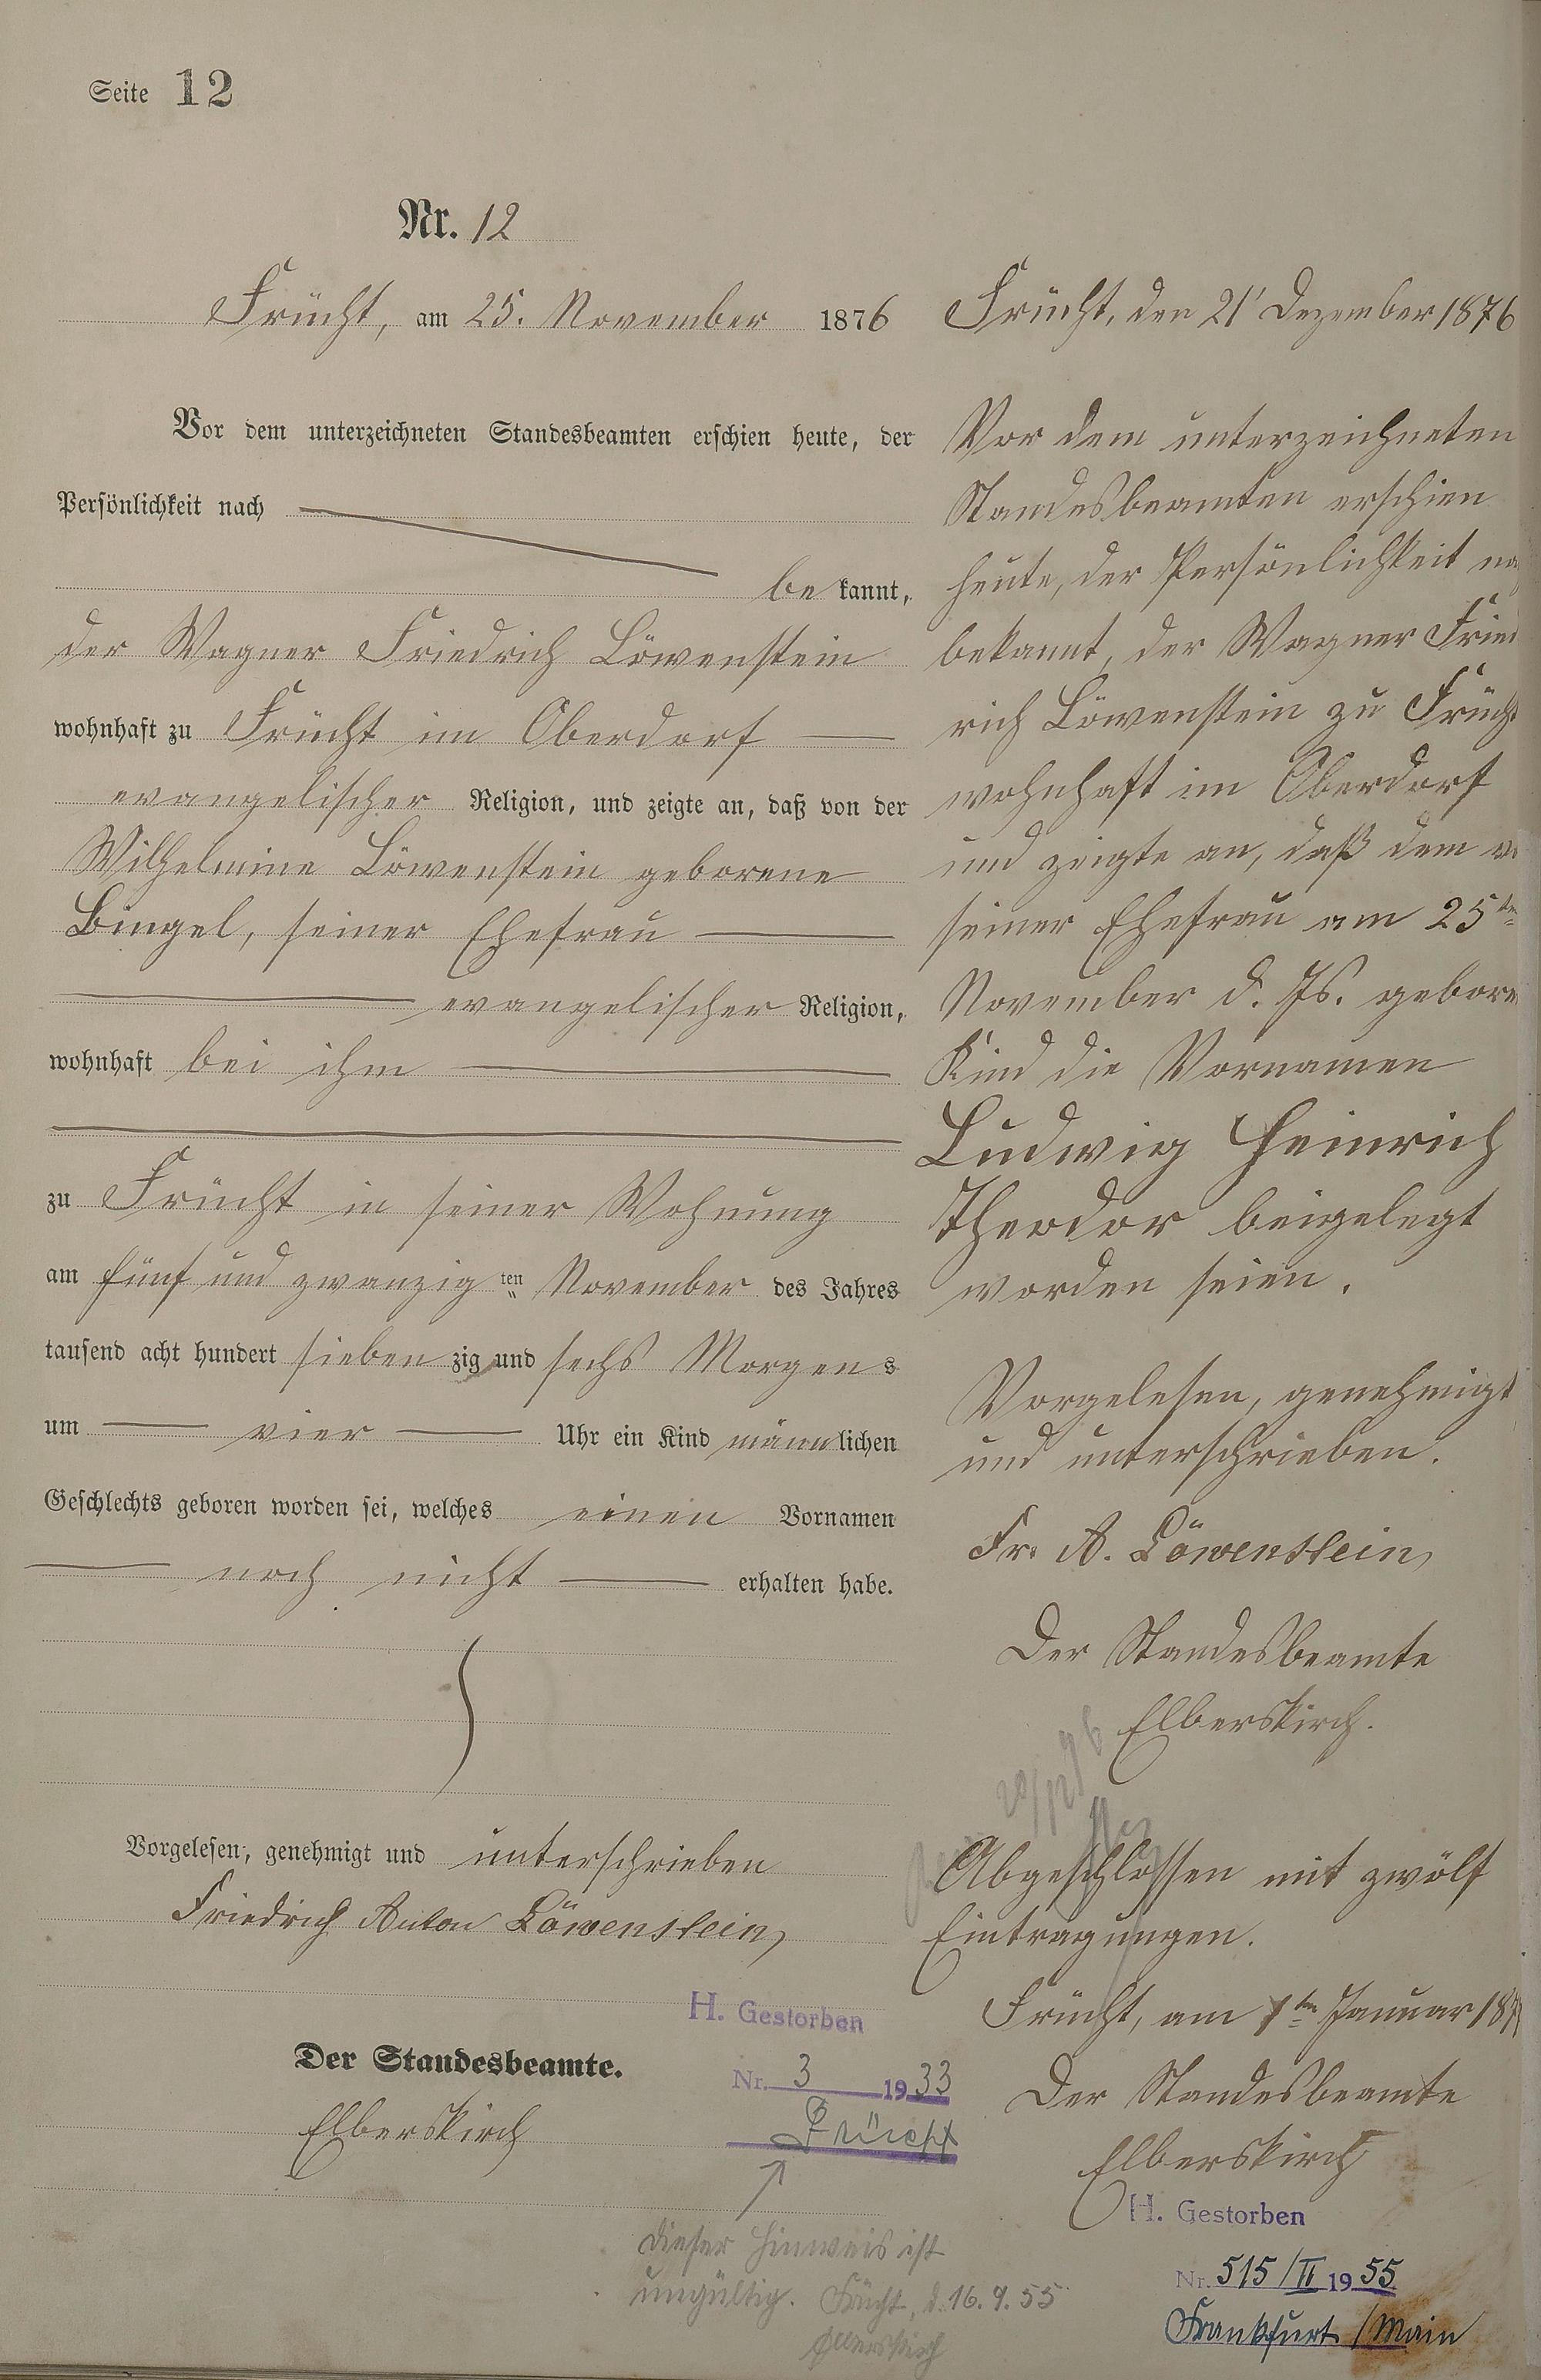 Seite 12
Nr. 12
Frücht, am 25. November 1876
Vor dem unterzeichneten Standesbeamten erschien heute, der
Persönlichkeit nach
be kannt,
der Wagner Friedrich Löwenstein
wohnhaft zu Frücht im Oberdorf
evangelischer Religion, und zeigte an, daß von der
Wilhelmine Löwenstein geborene
Bingel, seiner Ehefrau
evangelischer Religion,
wohnhaft bei ihm
zu Frücht in seiner Wohnung
am fünf und zwanzig ten November des Jahres
tausend acht hundert sieben zig und sechs Morgens
um vier Uhr ein Kind männlichen
Geschlechts geboren worden sei, welches einen Vornamen
noch nicht erhalten habe.
Vorgelesen, genehmigt und unterschrieben
Friedrich Anton Löwenstein
Der Standesbeamte.
Elberskirch
H. Gestorben
Nr. 3 1933
Frücht
dieser Hinweis ist
ungültig. Frücht, d. 16. 9. 55
Elberskirch
Frücht, den 21' Dezember 1876
Vor dem unterzeichneten
Standesbeamten erschien
heute, der Persönlichkeit na
bekannt, der Wagner Fried
rich Löwenstein zu Frücht
wohnhaft im Oberdorf
und zeigte an, daß dem v
seiner Ehefrau am 25ten
November d. Js. gebore
Kind die Vornamen
Ludwig Heinrich
Theodor beigelegt
worden seien.
Vorgelesen, genehmigt
und unterschrieben.
Fr. A. Löwenstein
Der Standesbeamte
Elberskirch.
Abgeschlossen mit zwölf
Eintragungen.
Frücht, am 1ten Januar 187
Der Standesbeamte
Elberskirch
H. Gestorben
Nr. 515/II 1955
Frankfurt/Main